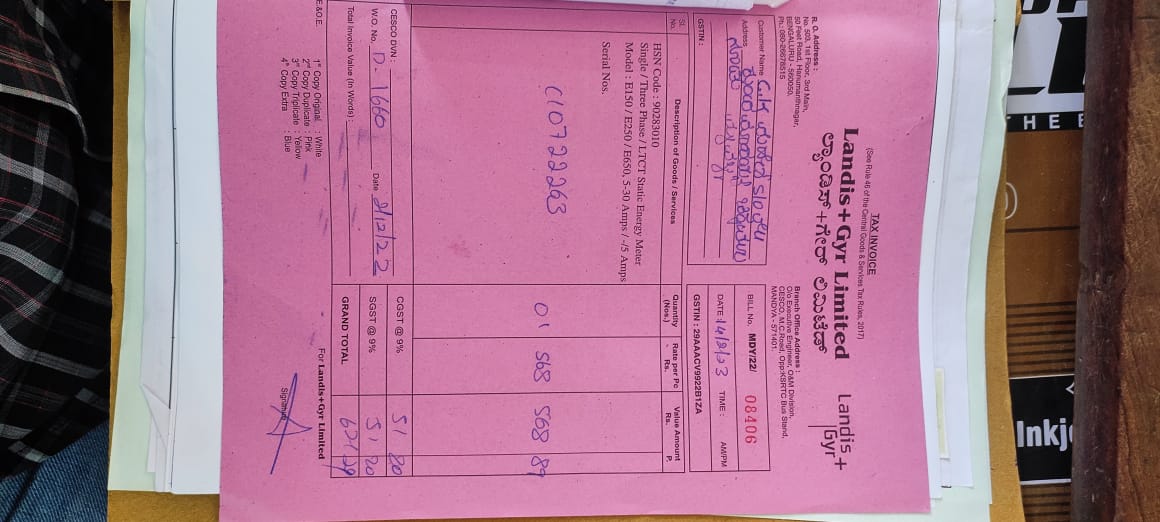 TAX INVOICE
(See Rule 46 of the Central Goods & Services Tax Rules, 2017)
Landis+Gyr Limited
ಲ್ಯಾಂಡಿಸ್+ಗೇರ್ ಲಿಮಿಟೆಡ್
Landis+
Gyr+
R. O. Address :
No. 503, 1st Floor, 3rd Main,
50 Feet Road, Hanumanthnagar,
BENGALURU - 560050.
Ph.: 080-26678515
Branch Office Address :
C/o Executive Engineer, O&M Division,
CESCO, M.C.Road, Opp:KSRTC Bus Stand,
MANDYA - 571401.
Customer Name G.K
Address
GSTIN :
BILL No. MDY/22/ 08406
DATE 14/2/23 TIME : AM/PM
GSTIN : 29AAACV9922B1ZA
Sl. No. Description of Goods / Services Quantity (Nos.) Rate per Pc Rs. Value Amount Rs. P.
HSN Code : 90283010
Single / Three Phase / LTCT Static Energy Meter
Model : E150 / E250 / E650, 5-30 Amps / -/5 Amps
Serial Nos.
C10722263 01 568 568 89
CESCO DVN : CGST @ 9% 51 20
W.O. No. D-1660 Date 2/12/22 SGST @ 9% 51 20
Total Invoice Value (In Words) : GRAND TOTAL 671 29
E.&O.E.
1st Copy Original : White
2nd Copy Duplicate : Pink
3rd Copy Triplicate : Yellow
4th Copy Extra : Blue
For Landis+Gyr Limited
Signature
THE
Inkj